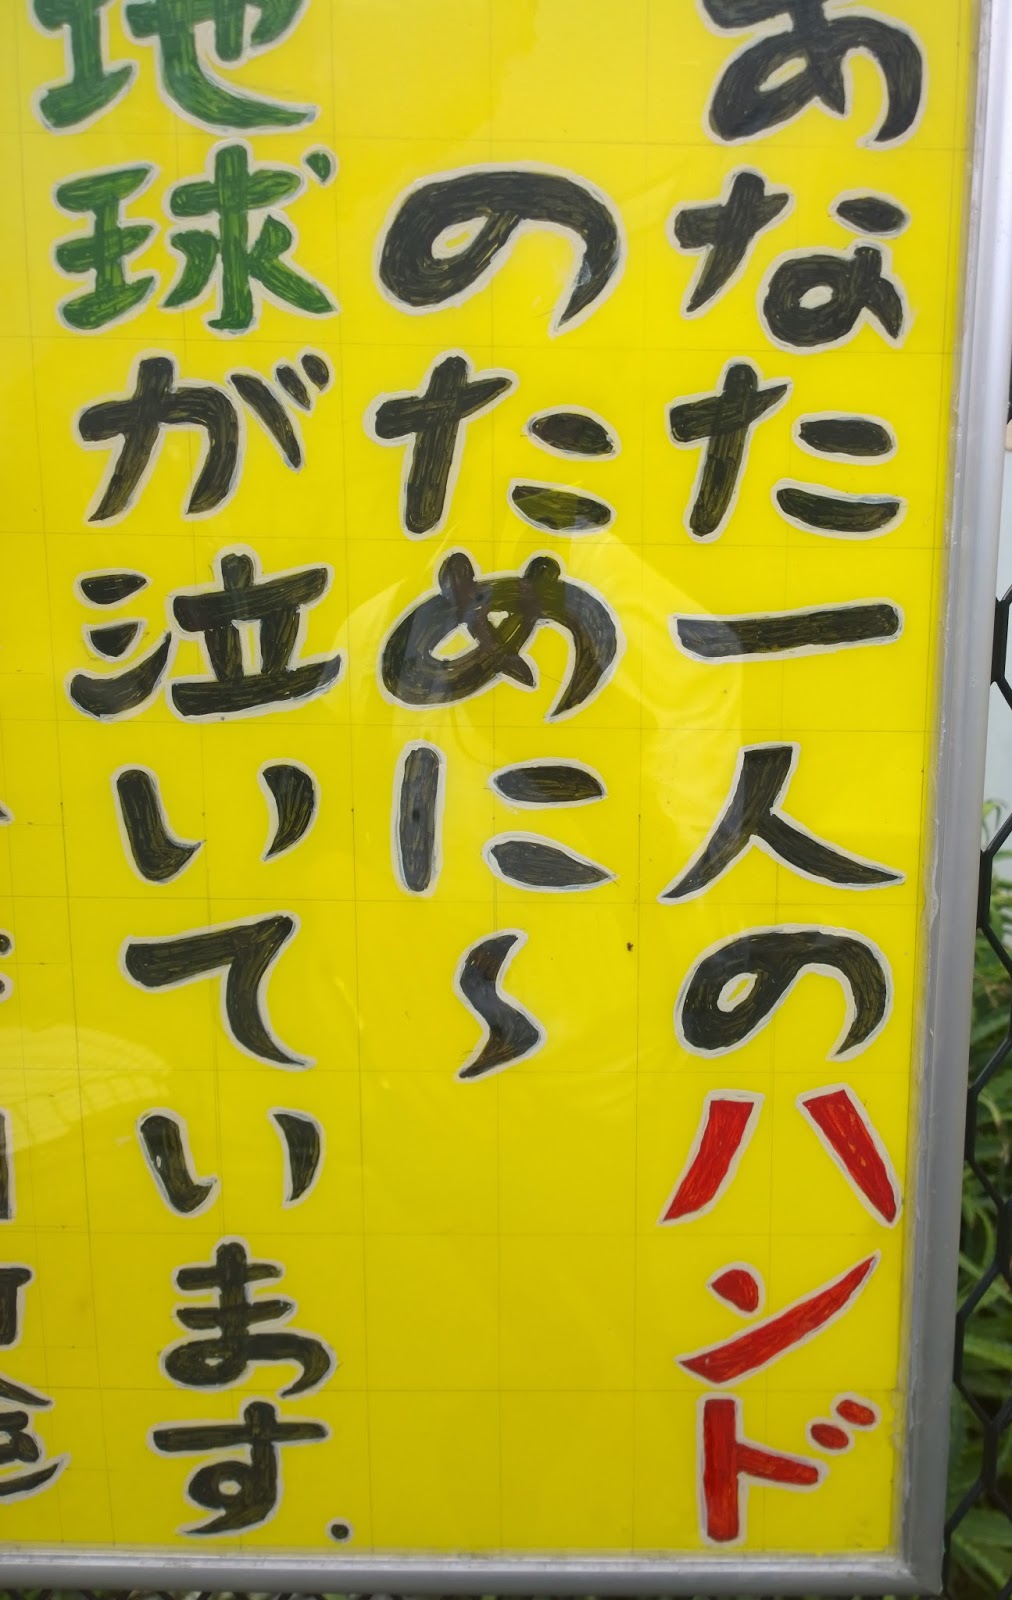 あなた一人のハンド
のために〜
地球が泣いています.